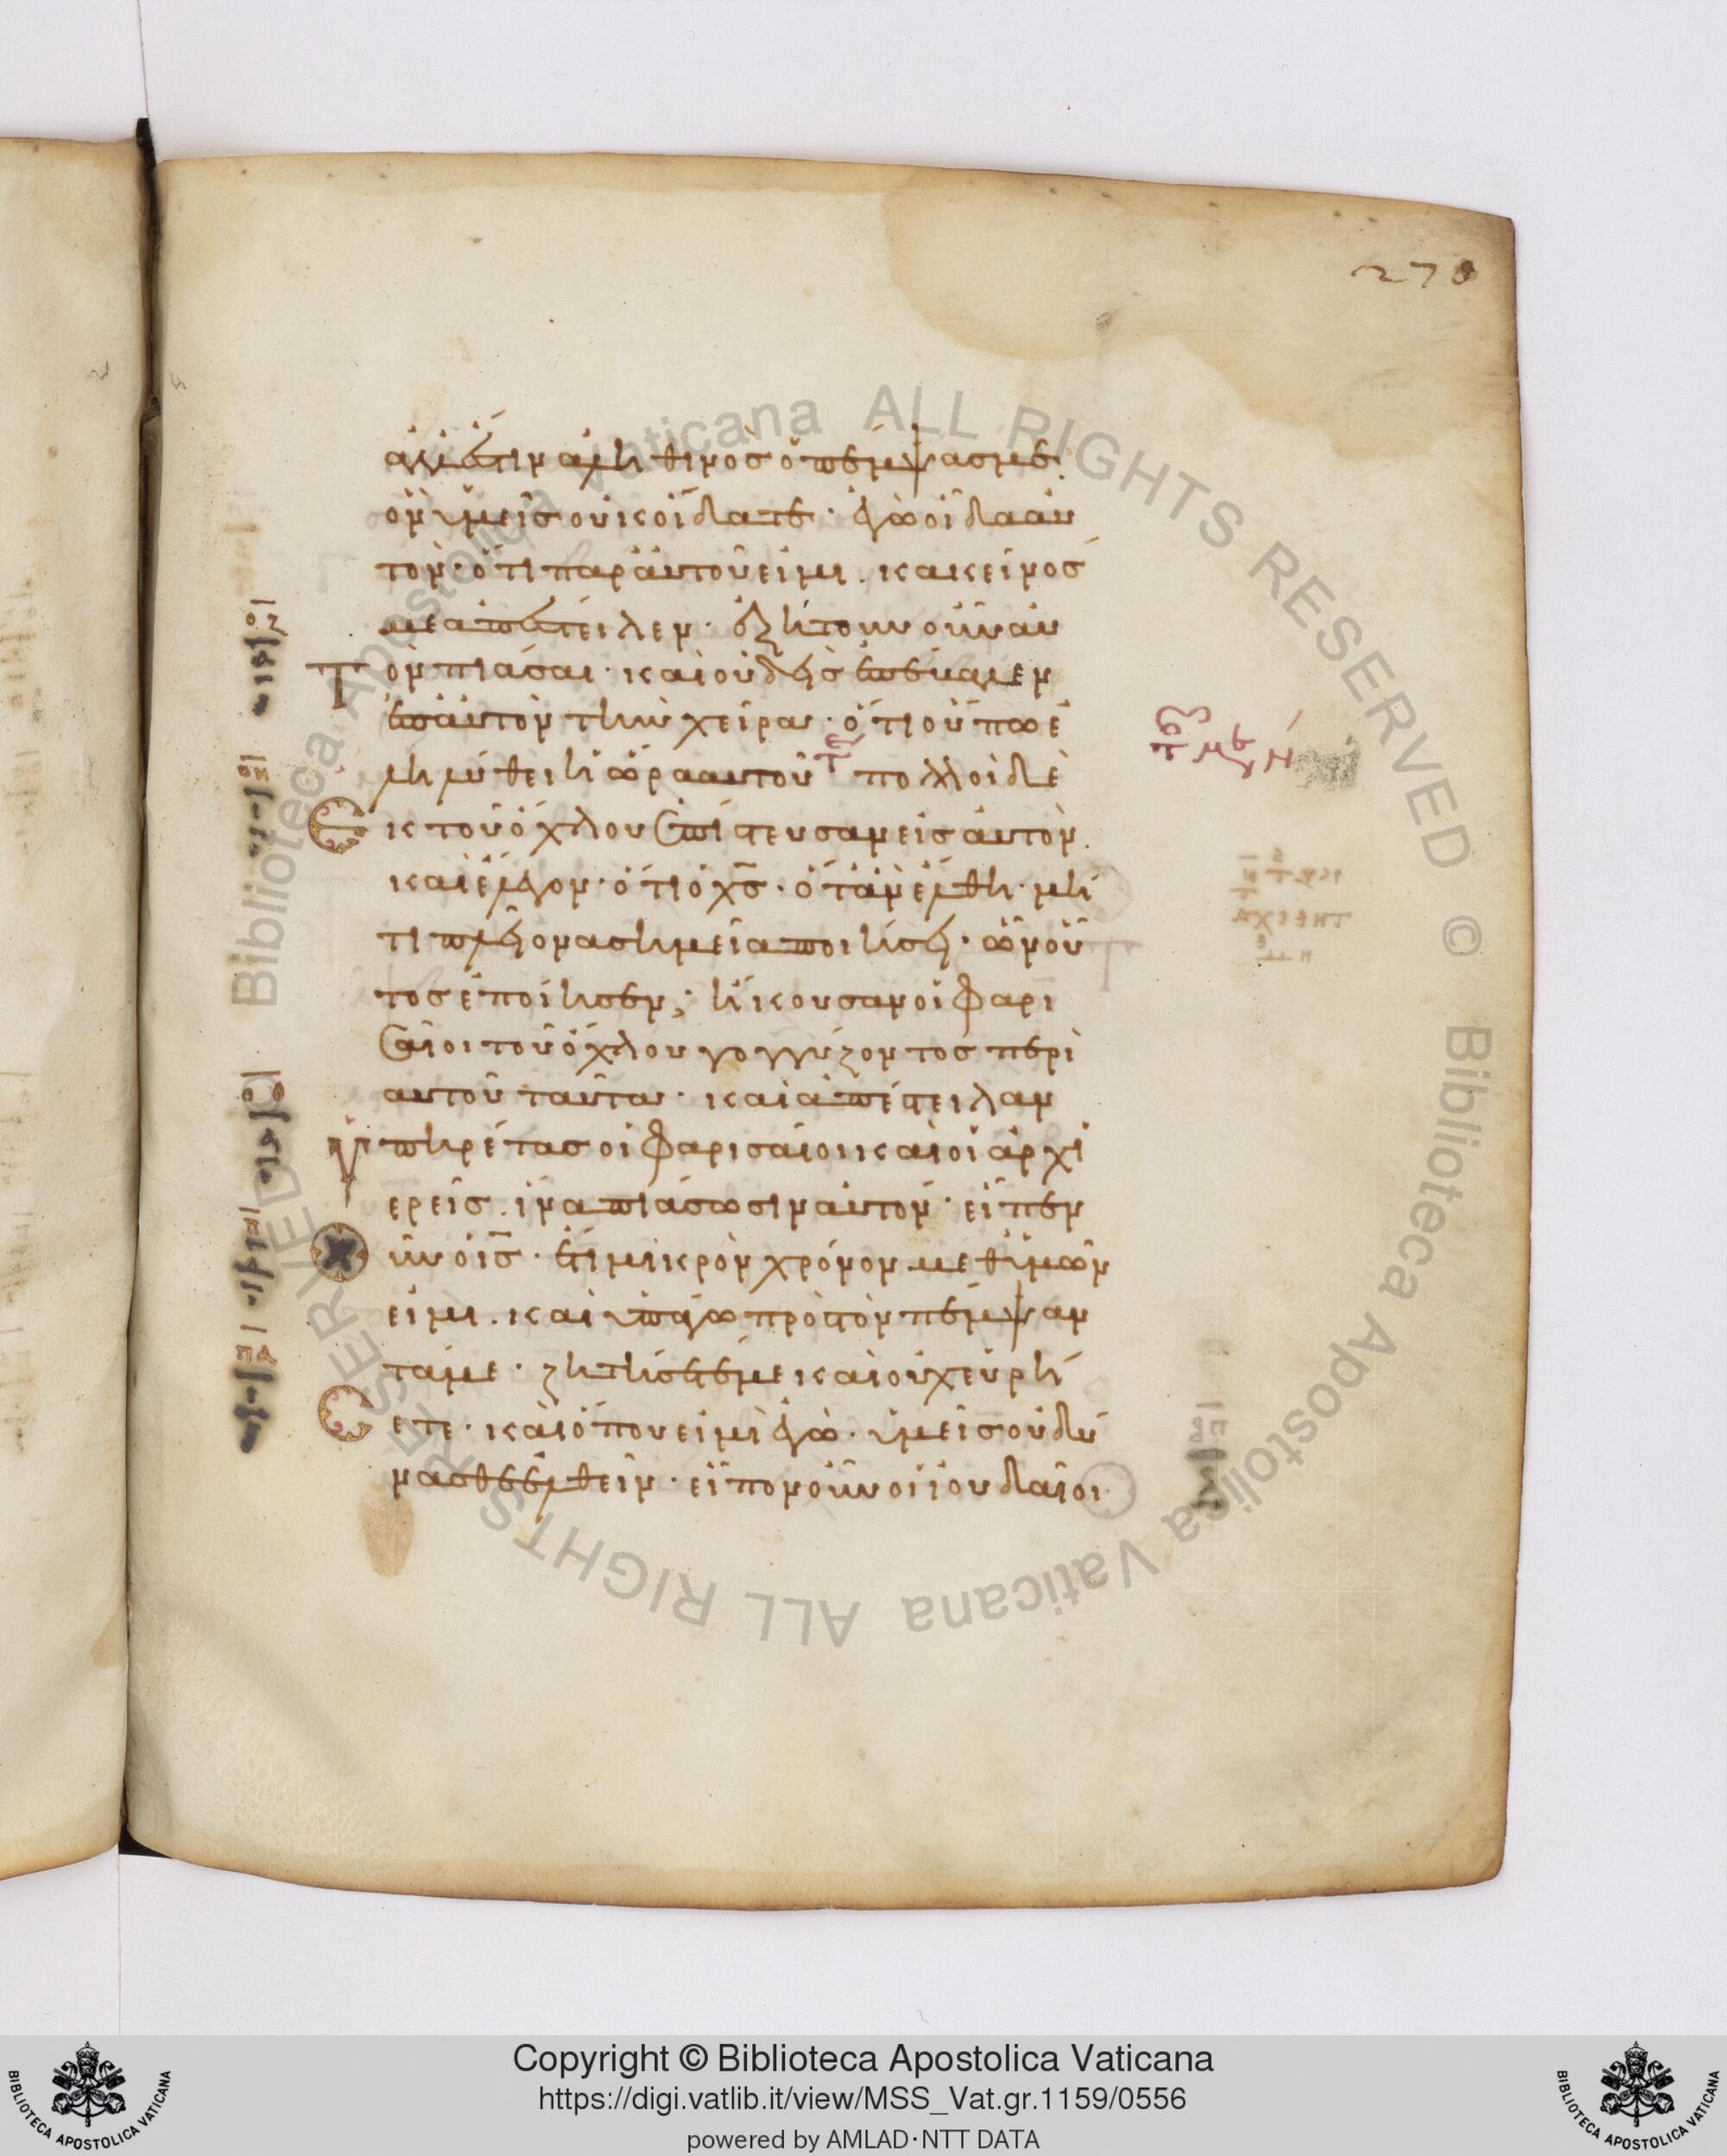 270
ἀλλ' ἔστιν ἀληθινὸς ὁ πέμψας με.
ὃν ὑμεῖς οὐκ οἴδατε· ἐγὼ οἶδα αὐ
τὸν· ὅτι παρ' αὐτοῦ εἰμι. κἀκεῖνός
με ἀπέστειλεν· ἐζήτουν οὖν αὐ
τὸν πιάσαι· καὶ οὐδεὶς ἐπέβαλεν
ἐπ' αὐτὸν τὴν χεῖρα· ὅτι οὔπω ἐ
ληλύθει ἡ ὥρα αὐτοῦ πολλοὶ δὲ
ἐκ τοῦ ὄχλου ἐπίστευσαν εἰς αὐτὸν.
καὶ ἔλεγον· ὅτι ὁ χς· ὅταν ἔλθη· μή
τι πλείονα σημεῖα ποιήσει· ὧν οὗ
τος ἐποίησεν; ἤκουσαν οἱ φαρι
σαῖοι τοῦ ὄχλου γογγύζοντος περὶ
αὐτοῦ ταῦτα· καὶ ἀπέστειλαν
ὑπηρέτας οἱ φαρισαῖοι καὶ οἱ ἀρχι
ερεῖς. ἵνα πιάσωσιν αὐτόν· εἶπεν
οὖν ὁ ις· ἔτι μικρὸν χρόνον μεθ' ὑμῶν
εἰμι. καὶ ὑπάγω πρὸς τὸν πέμψαν
τά με· ζητήσετέ με καὶ οὐχ εὑρή
σετε· καὶ ὅπου εἰμὶ ἐγὼ· ὑμεῖς οὐ δύ
νασθε ἐλθεῖν· εἶπον οὖν οἱ ἰουδαῖοι
Copyright © Biblioteca Apostolica Vaticana
https://digi.vatlib.it/view/MSS_Vat.gr.1159/0556
powered by AMLAD·NTT DATA
BIBLIOTECA APOSTOLICA VATICANA
BIBLIOTECA APOSTOLICA VATICANA
Biblioteca Apostolica Vaticana ALL RIGHTS RESERVED © Biblioteca Apostolica Vaticana ALL RIGHTS RESERVED